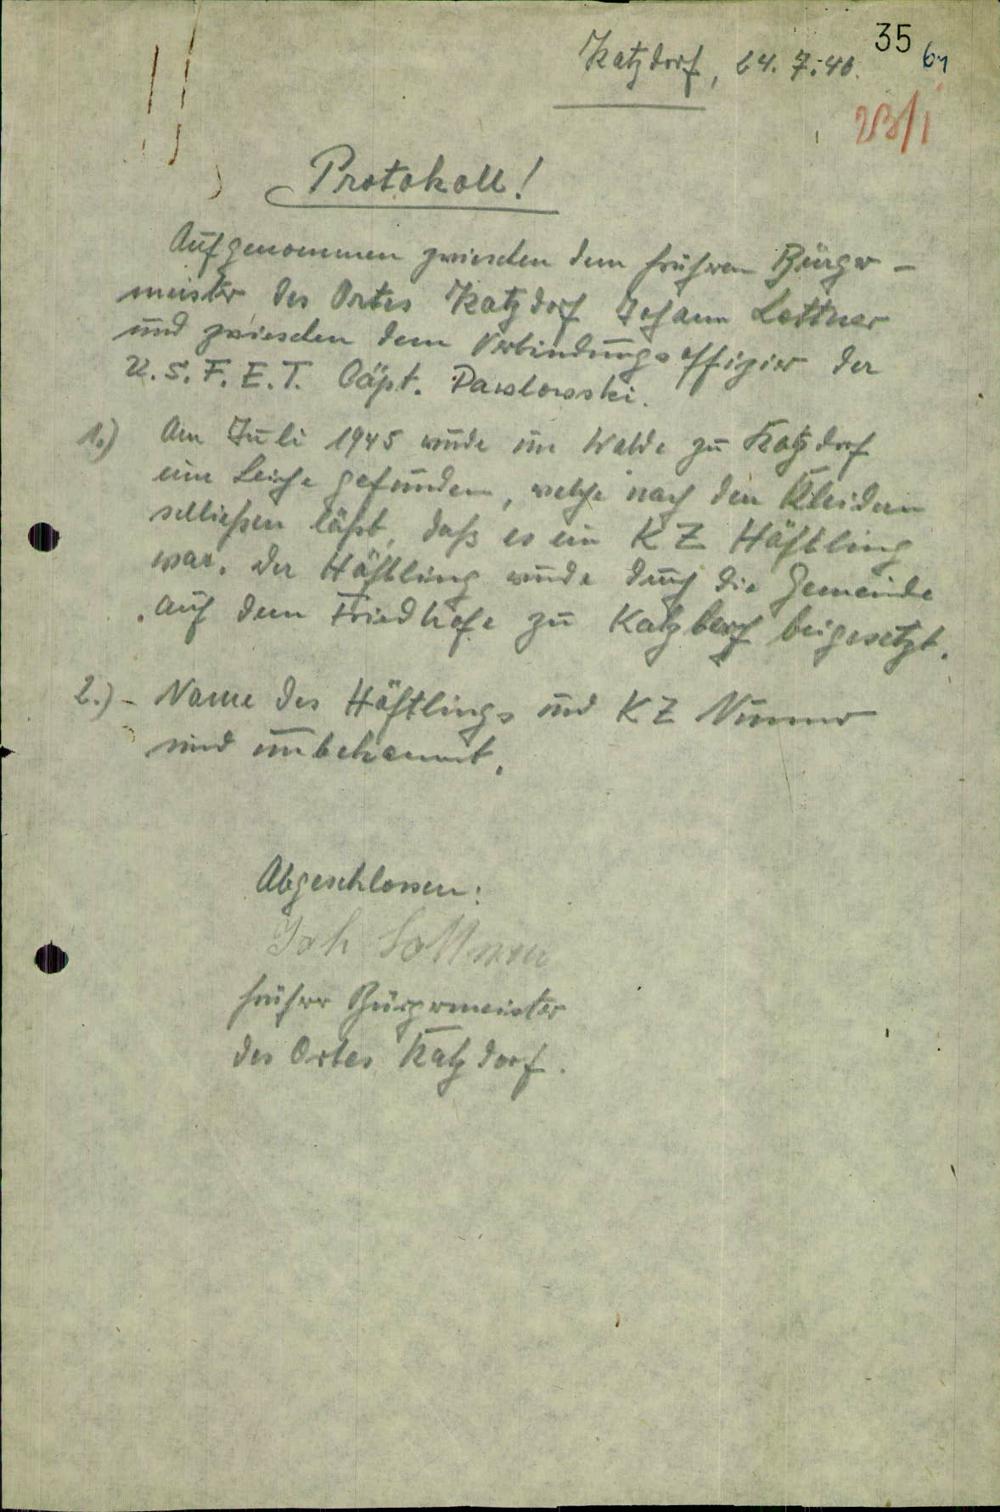 35
61
Katzdorf, 24.7.46.
23/I
Protokoll!
Aufgenommen zwieschen dem frühren Bürger-
meister des Ortes Katzdorf Johann Lottner
und zwieschen dem Verbindungsoffizier der
U.S.F.E.T. Cäpt. Pawlowski.
1.) Am Juli 1945 wude im Walde zu Katzdorf
eine Leiche gefunden, welche nach den Kleidern
schließen läßt, daß es ein KZ Häftling
war. Der Häftling wude duch die Gemeinde
auf dem Friedhofe zu Katzdorf beigesetzt.
2.) - Name des Häftlings und KZ Nummer
sind unbekannt.
Abgeschlossen:
Joh Lottner
früher Bürgermeister
des Ortes Katzdorf.